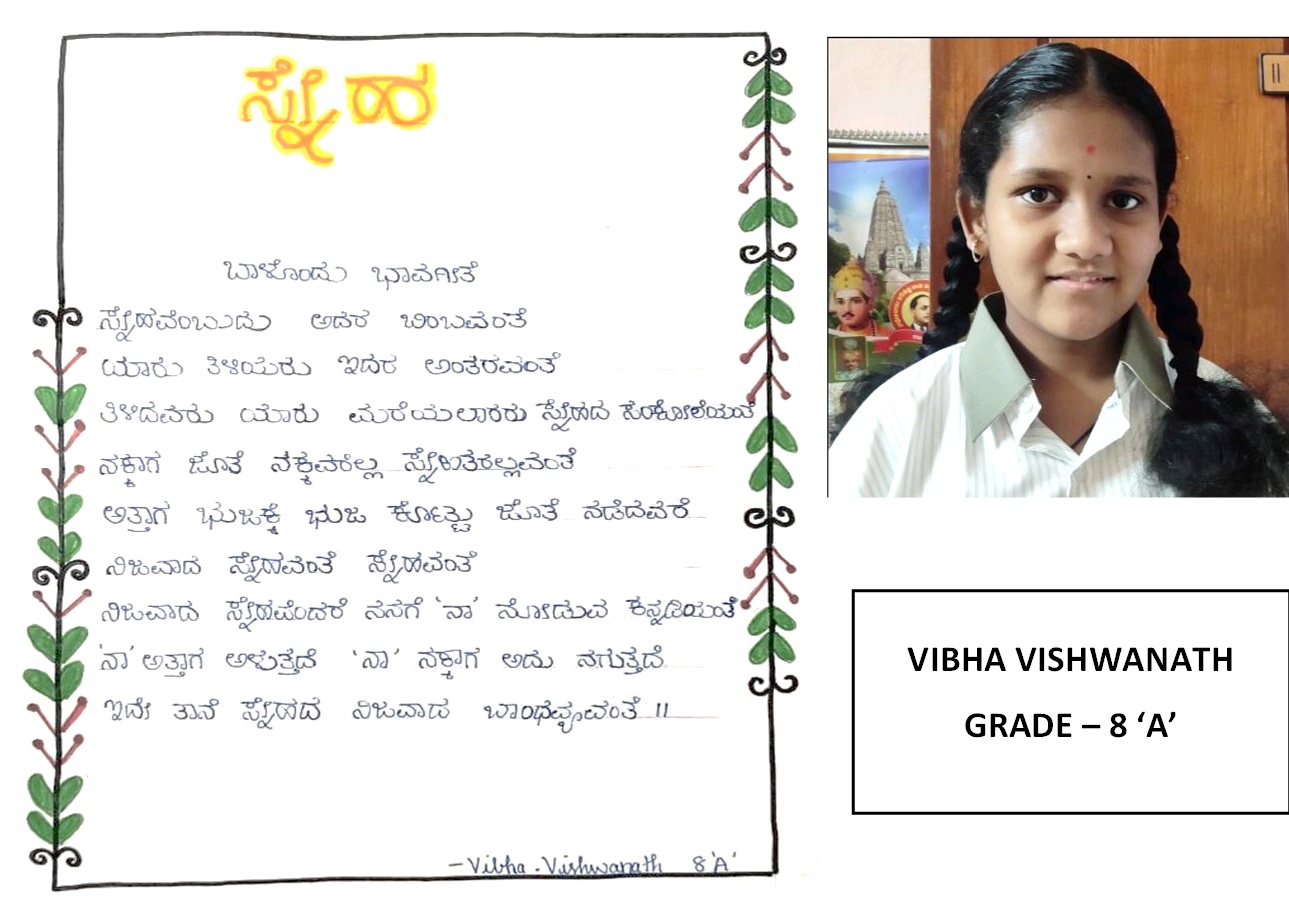 ಸ್ನೇಹ
ಬಾಳೊಂದು ಭಾವಗೀತೆ
ಸ್ನೇಹವೆಂಬುದು ಅದರ ಬಿಂಬವಂತೆ
ಯಾರು ತಿಳಿಯರು ಇದರ ಅಂತರವಂತೆ
ತಿಳಿದವರು ಯಾರು ಮರೆಯಲಾರರು ಸ್ನೇಹದ ಸಂಕೋಲೆಯಂತೆ
ನಕ್ಕಾಗ ಜೊತೆ ನಕ್ಕವರೆಲ್ಲ ಸ್ನೇಹಿತರಲ್ಲವಂತೆ
ಅತ್ತಾಗ ಭುಜಕ್ಕೆ ಭುಜ ಕೋಟ್ಟು ಜೊತೆ ನಡೆದವರೆ
ನಿಜವಾದ ಸ್ನೇಹವಂತೆ ಸ್ನೇಹವಂತೆ
ನಿಜವಾದ ಸ್ನೇಹವೆಂದರೆ ನನಗೆ 'ನಾ' ನೋಡುವ ಕನ್ನಡಿಯಂತೆ
'ನಾ' ಅತ್ತಾಗ ಅಳುತ್ತದೆ 'ನಾ' ನಕ್ಕಾಗ ಅದು ನಗುತ್ತದೆ
ಇದೇ ತಾನೆ ಸ್ನೇಹದ ನಿಜವಾದ ಬಾಂಧವ್ಯವಂತೆ ॥
- Vibha . Vishwanath 8 'A'
VIBHA VISHWANATH
GRADE – 8 ‘A’